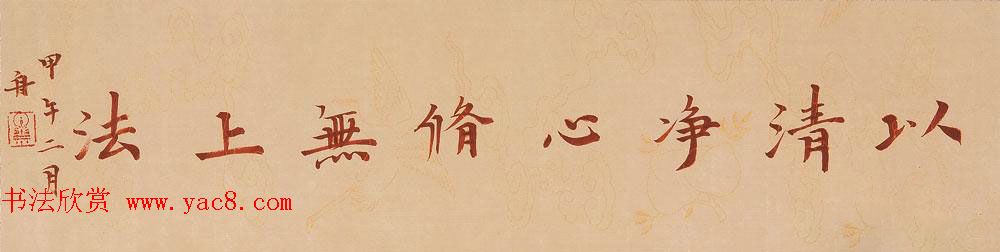 以清净心脩無上法
甲午二月
舟
书法欣赏 www.yac8.com